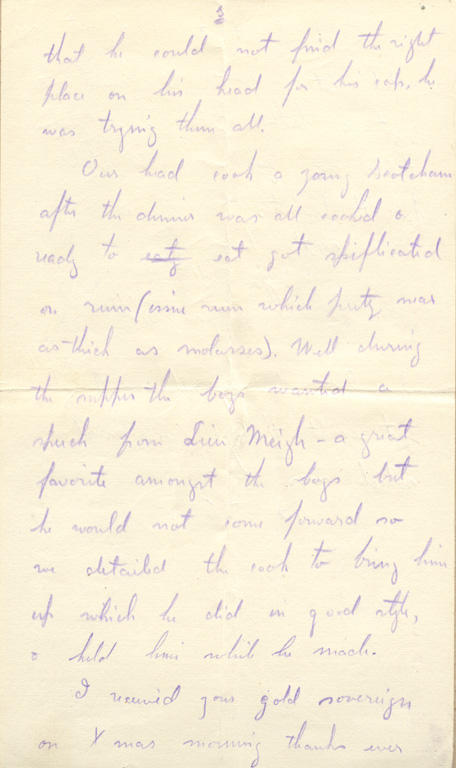 3
that he could not find the right
place on his head for his cap, he
was trying them all.
Our head cook a young Scotchman
after the dinner was all cooked &
ready to eatg eat got spiflicated
on rum (issue rum which pretty near
as thick as molasses). Well during
the supper the boys wanted a
speech from Lieu Meigh - a great
favorite amongst the boys but
he would not come forward so
we detailed the cook to bring him
up which he did in good style,
& held him while he made.
I received your gold sovereign
on Xmas morning thanks ever